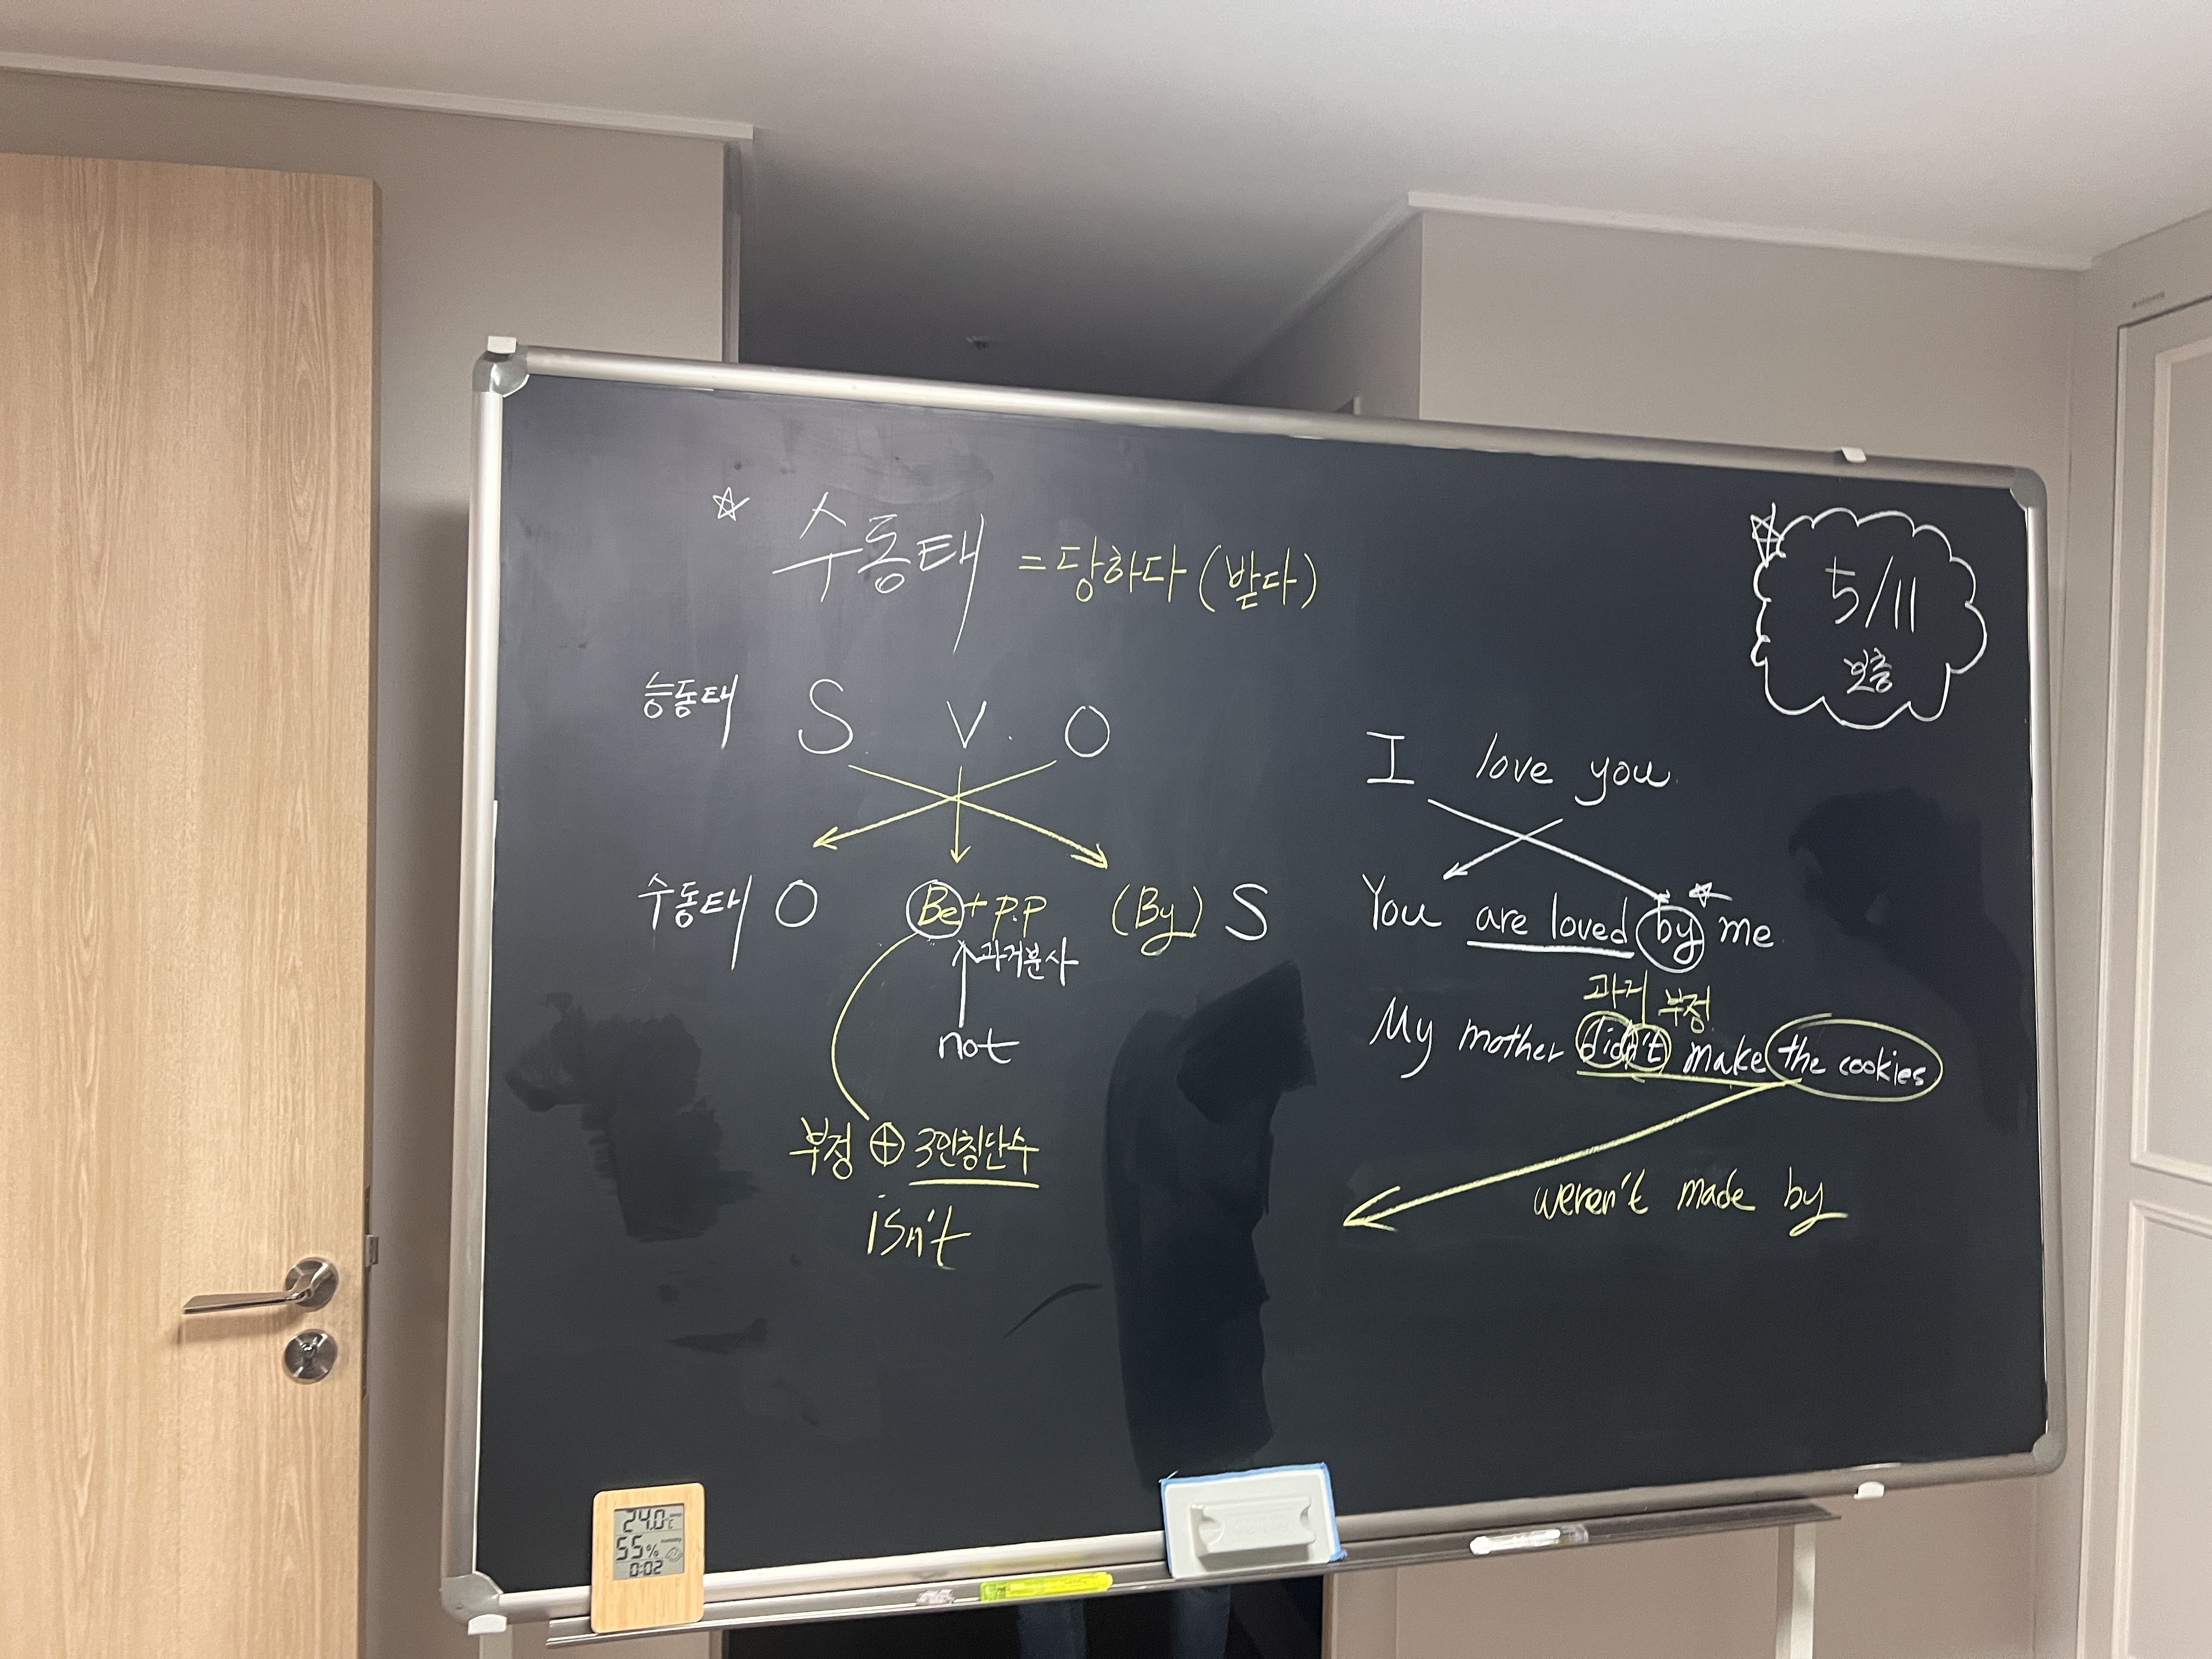 ☆ 수동태 = 당하다 (받다)
5/11
오흥
능동태 S V. O
수동태 O Be + P.P (By) S
과거분사
not
부정 ⊕ 3인칭단수
isn't
I love you.
You are loved by me.
과거 부정
My mother didn't make the cookies
weren't made by
24.0°C
55%
0:02